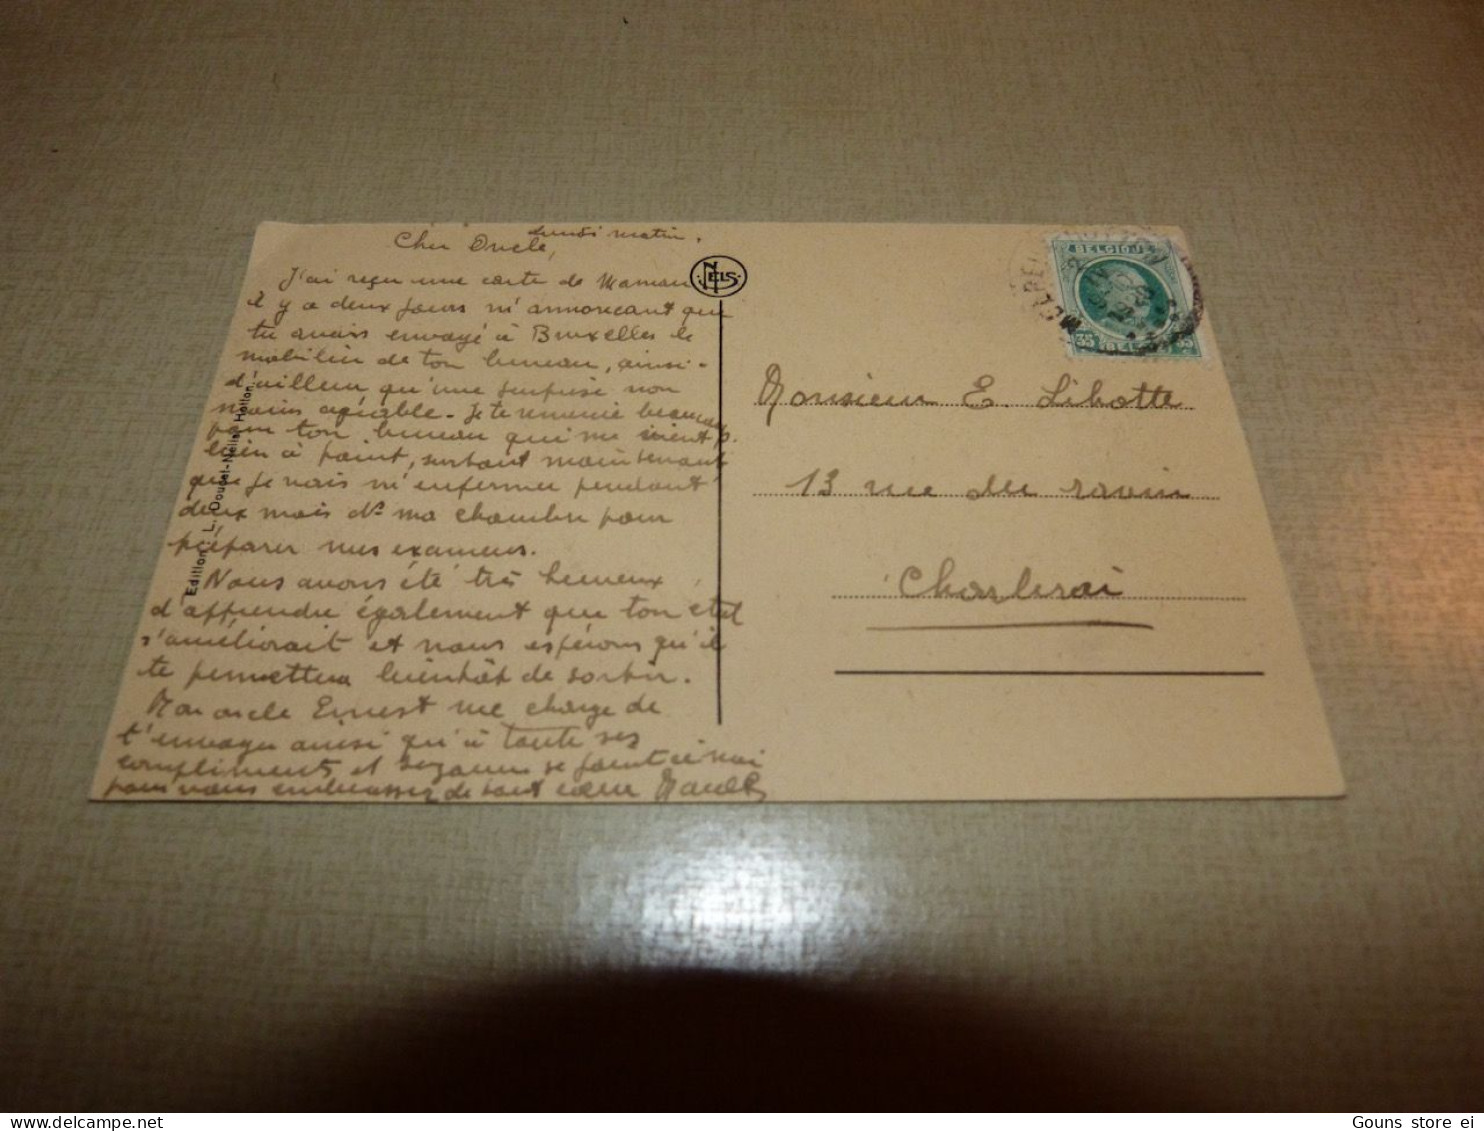 Lundi matin.
Cher Oncle,
J'ai reçu une carte de Maman
il y a deux jours m'annonçant que
tu avais envoyé à Bruxelles le
mobilier de ton bureau, ainsi
d'ailleurs qu'une surprise non
moins agréable. Je te remercie beaucoup
pour ton bureau qui me vient
bien à point, surtout maintenant
que je vais m'enfermer pendant
deux mois ds ma chambre pour
préparer mes examens.
Nous avons été très heureux
d'apprendre également que ton état
s'améliorait et nous espérons qu'il
te permettra bientôt de sortir.
Mon oncle Ernest me charge de
t'envoyer ainsi qu'à toute ses
compliments et Suzanne se joint à moi
pour vous embrasser de tout coeur
NELS
Edition L. Doucet-Nelis, Hollon
BELGIQUE
35 BEL 35
Monsieur E. Libotte
13 rue du ravin
Charleroi
Gouns store ei